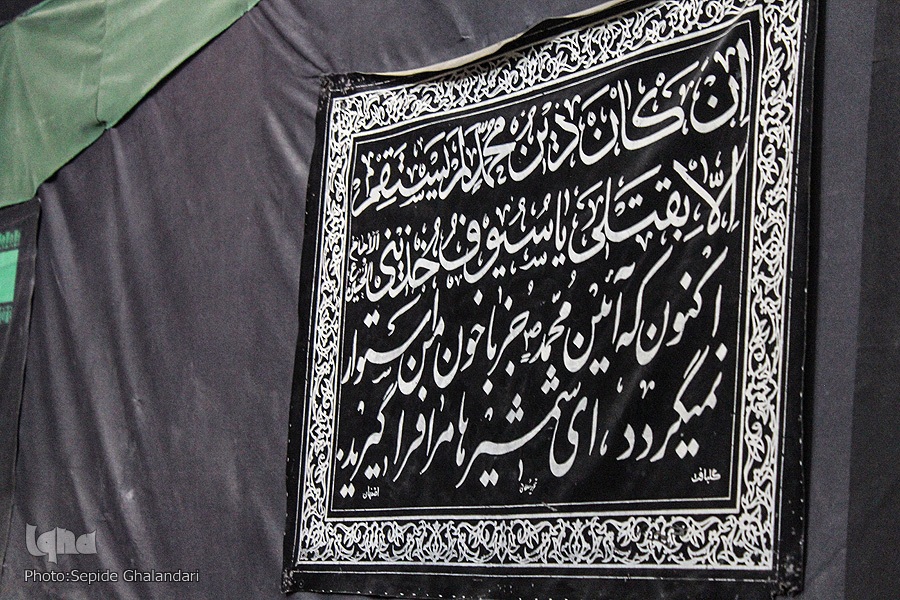 اِن كَانَ دَيْنُ مُحَمَّدٍ لَمْ يَسْتَقِمْ
اِلّا بِقَتلى يا سُيُوفُ خُذيني
الامام الحسين ع
اکنون که آئین محمد ص جز با خون من استوار
نمیگردد، ای شمشیرها مرا فراگیرید.
گلبافت
اصفهان
Iqna
Photo:Sepide Ghalandari